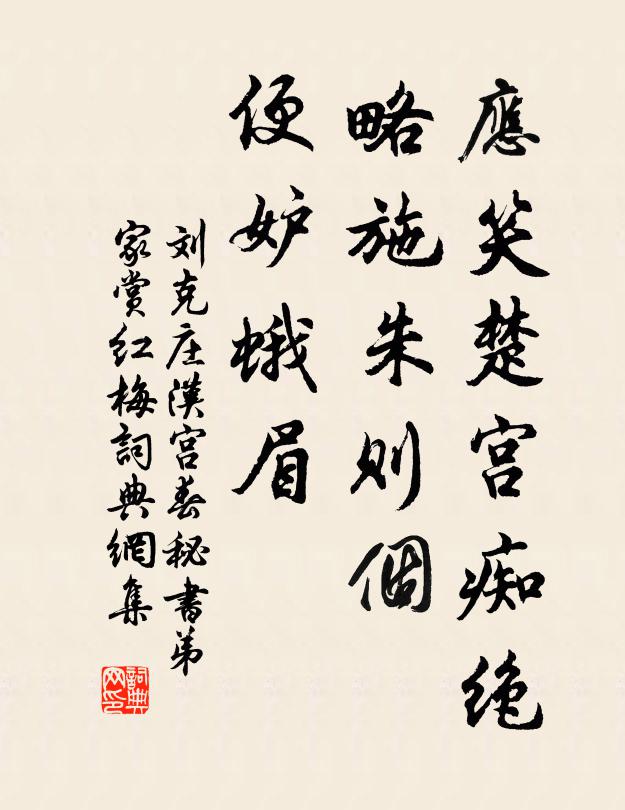 應笑楚宮痴绝
略施朱则個
便妒蛾眉
刘克庄漢宮春秘書弟
家赏红梅詞典網集
詞典
网印